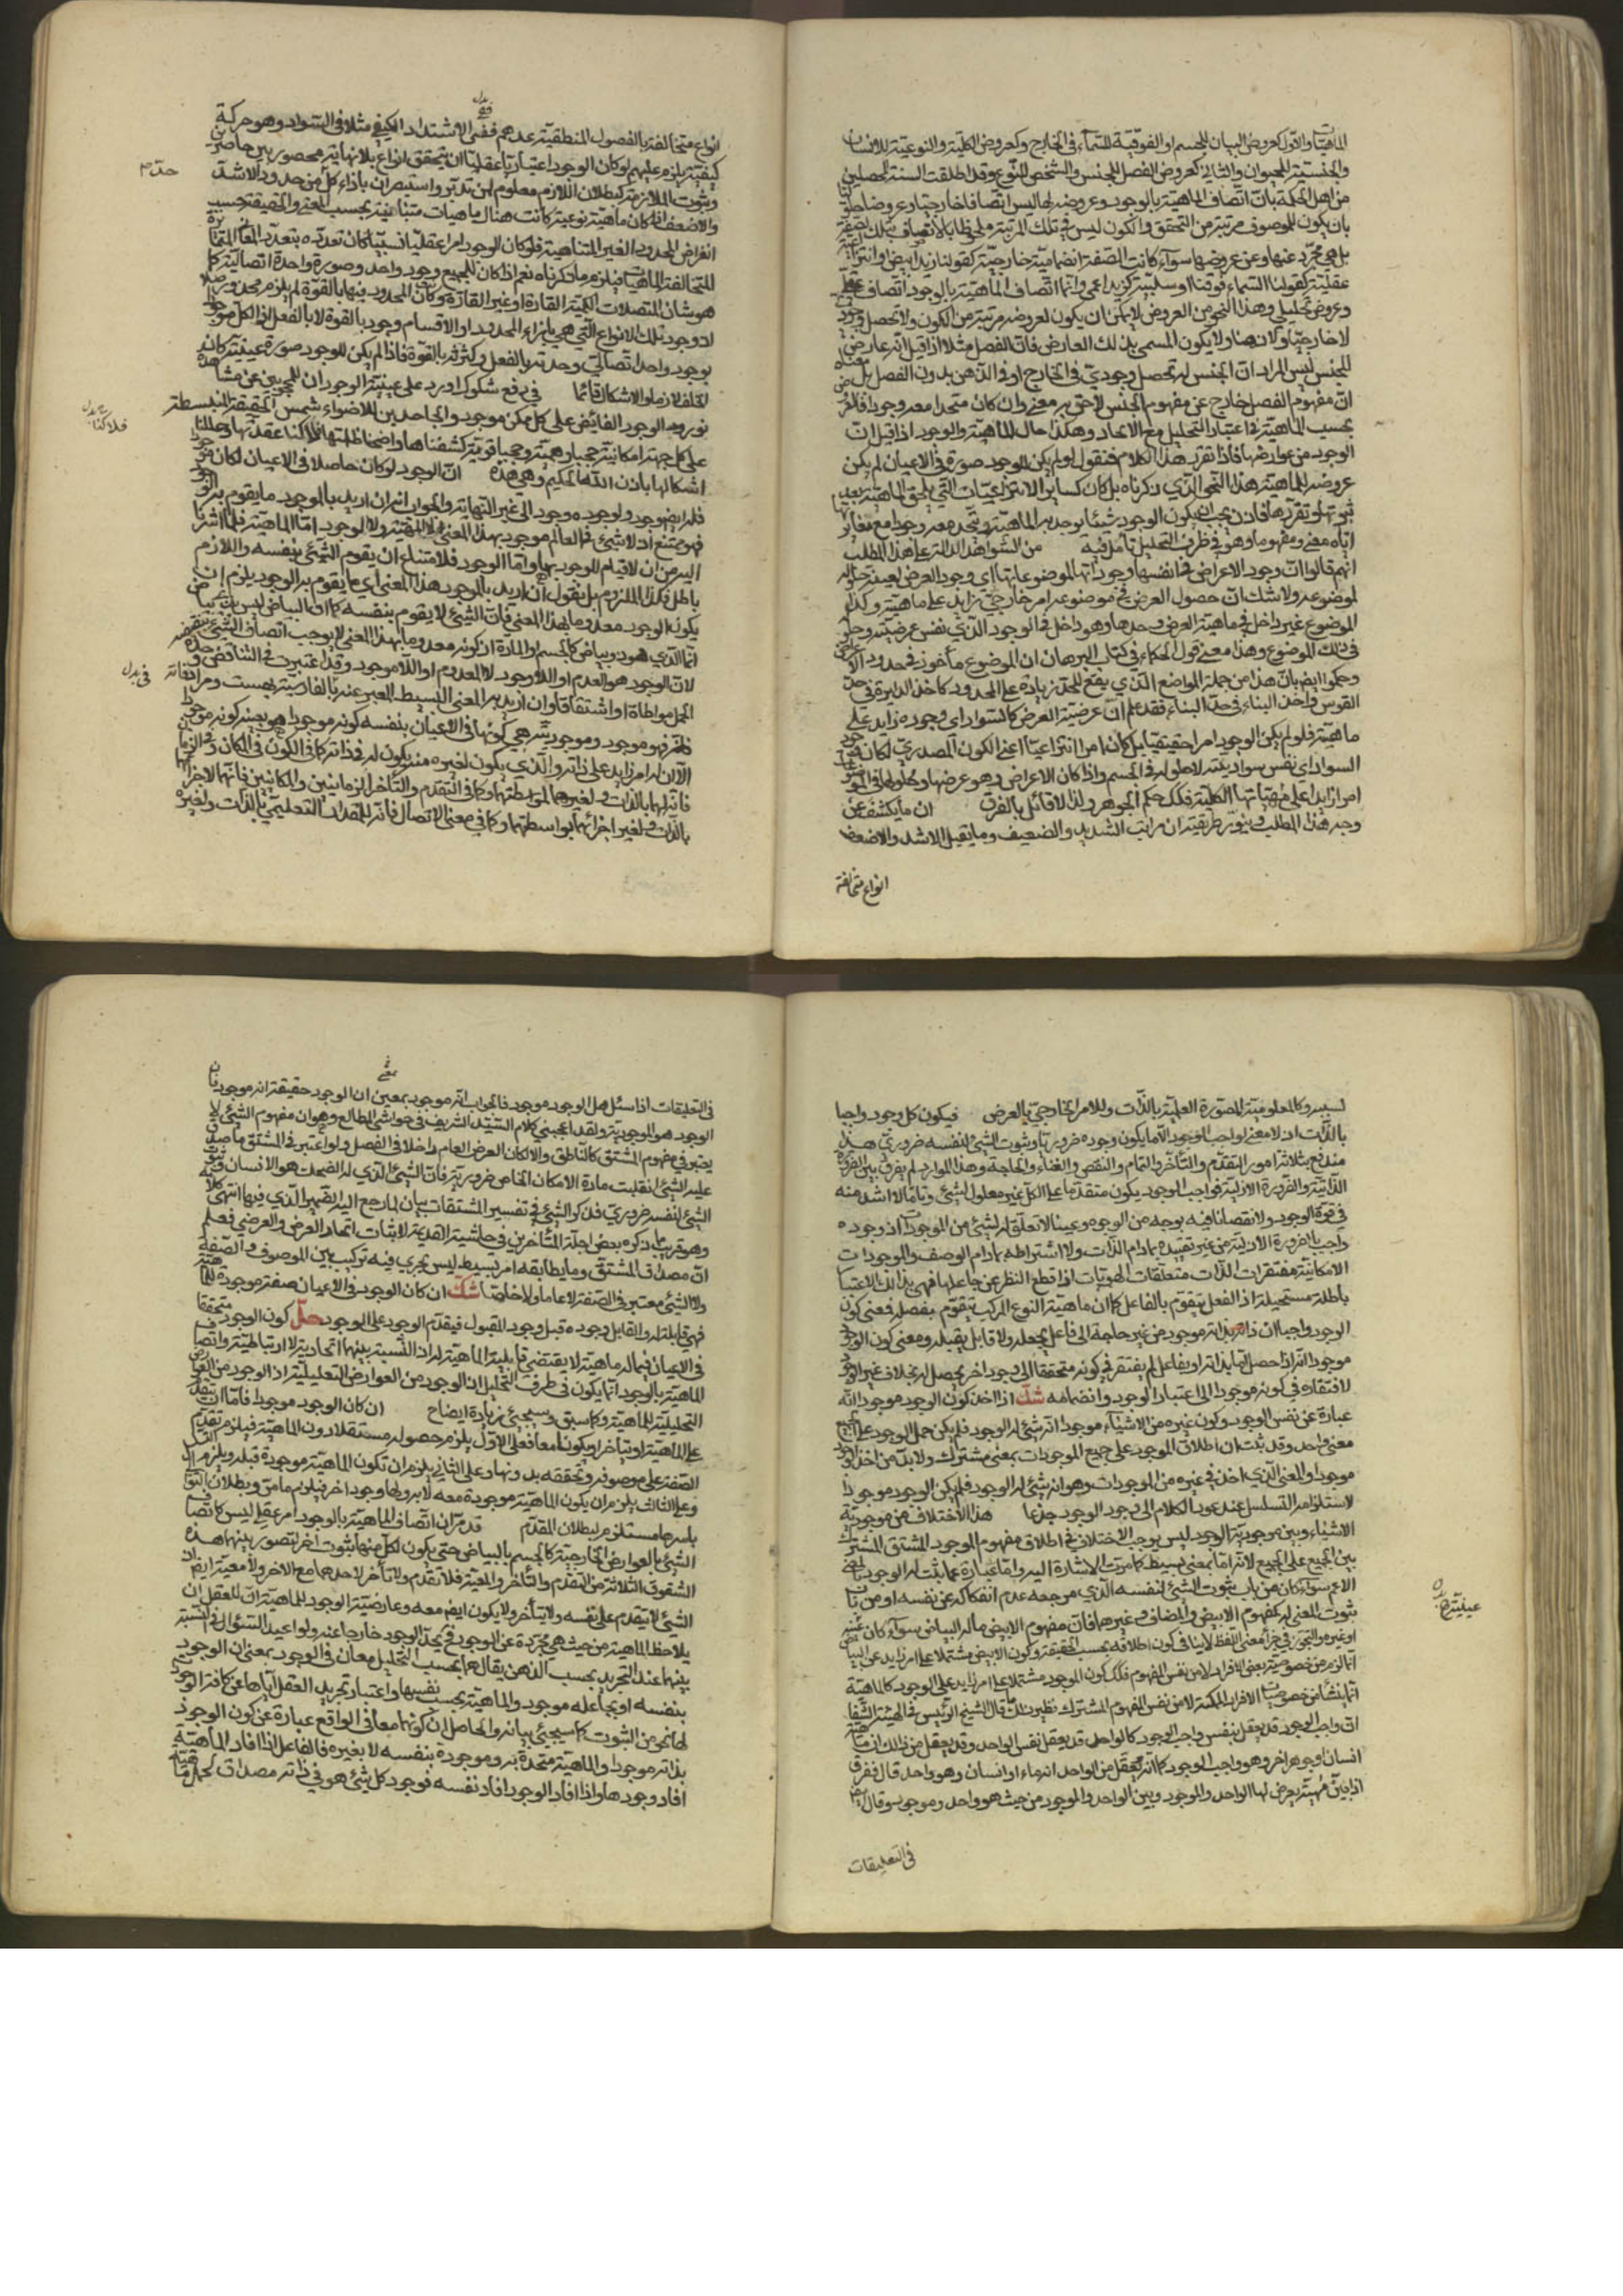 الماهيات والاول كعروض البياض للجسم او الفوقية للسماء في الخارج وكعروض الكلية والنوعية للانسان
والجنسية للحيوان والثاني كعروض الفصل للجنس والتشخص للنوع وقد اطلقت السنة المحصلين
من اهل الحكمة بان اتصاف الماهية بالوجود وعروضه لها ليس اتصافا خارجيا وعروضا حلوليا
بان يكون للموصوف مرتبة من التحقق والكون ليس في تلك المرتبة مخلوطا بالاتصاف بتلك الصفة
بل هي مجرد عنها وعن عروضها سواء كانت الصفة انضمامية خارجية كقولنا زيد ابيض او انتزاعية
عقلية كقولنا السماء فوقنا او سلبية كزيد اعمى وانما اتصاف الماهية بالوجود اتصاف عقلي
وعروض تحليلي وهذا النحو من العروض لا يمكن ان يكون لمعروضه مرتبة من الكون ولا تحصل وجودي
لا خارجيا ولا ذهنا ولا يكون المسمى بذلك العارض فان الفصل مثلا اذا قيل انه عارض
للجنس ليس المراد ان للجنس له تحصل وجودي في الخارج او في الذهن بدون الفصل بل معناه
ان مفهوم الفصل خارج عن مفهوم الجنس لاحق به معنى وان كان متحدا معه وجودا فالعروض
بحسب الماهية في اعتبار التحليل مع الاتحاد وهكذا حال الماهية والوجود اذا قيل ان
الوجود من عوارضها فاذا تقرر هذا الكلام فنقول لو لم يكن للوجود صورة في الاعيان لم يكن
عروضه للماهية هذا النحو الذي ذكرناه بل كان كساير الانتزاعيات التي تلحق الماهية بعد
ثبوتها وتقررها فاذن يجب ان يكون الوجود شيئا يوجد به الماهية ويتحد معه وجودا مع مغايرتها
اياه معنى ومفهوما وهو في ظرف التحليل تامل فيه من الشواهد الدالة على هذا المطلب
انهم قالوا ان وجود الاعراض في انفسها وجوداتها لموضوعاتها اي وجود العرض بعينه حلوله
لموضوعه ولا شك ان حصول العرض في موضوعه امر خارجي زايد على ماهيته وكذا
الموضوع غير داخل في ماهية العرض وحدها وهو داخل في الوجود الذي نفس عرضيته وحلوله
في ذلك الموضوع وهذا معنى قول الحكماء في كتاب البرهان ان الموضوع ماخوذ في حدود الاعراض
وحكموا ايضا بان هذا من جملة المواضع الذي يقع للحد زيادة على المحدود كاخذ الدايرة في حد
القوس واخذ البناء في حد البناء فقد علم ان عرضية العرض كالسواد اي وجوده زايد على
ماهيته فلو لم يكن الوجود امرا حقيقيا بل كان امرا انتزاعيا اعني الكون المصدري لكان وجود
السواد اي نفس سواديته لا حلوله في الجسم واذا كان الاعراض وهو عرضها وحلولها في الموضوع
امرا زايدا على مهياتها الكلية فكذلك حكم الجوهر ولذا لا قائل بالفرق ان ما يكشف عن
وجه هذا المطلب وينور طريقته ان مراتب الشديد والضعيف وما يقبل الاشد والاضعف
انواع متخالفة
انواع متخالفة بالفصول المنطقية عندهم ففي الاشتداد الكيفي مثلا في السواد وهو حركة
كيفية يلزم عليهم لو كان الوجود اعتباريا عقليا ان يتحقق انواع بلا نهاية محصورة بين حاصرين
وثبوت الملازمة كبطلان اللازم معلوم لمن تدبر واستبصر ان بازاء كل من حدود الاشد
حد م
والاضعف اذا كان ماهية نوعية كانت هناك ماهيات متباينة بحسب المعنى والحقيقة حسب
انفراض الحدود الغير المتناهية فلو كان الوجود امرا عقليا نسبيا كان تعدده بتعدد المعاني المتمايزة
المتخالفة الماهيات فيلزم ما ذكرناه نعم اذا كان للجميع وجود واحد وصورة واحدة اتصالية كما
هو شان المتصلات الكمية القارة او غير القارة وكان الحدود فيها بالقوة لم يلزم محذور اصلا
اذ وجود تلك الانواع التي هي بازاء الحدود او الاقسام وجود بالقوة لا بالفعل اذ الكل موجود
بوجود واحد اتصالي وحدته بالفعل وكثرته بالقوة فاذا لم يكن للوجود صورة عينية كان
الخلف لازما والاشكال قائما في دفع شكوك اورد على عينية الوجود ان للمحجوبين عن مشاهدة
نور الوجود الفائض على كل ممكن موجود والجاحدين لاضواء شمس الحقيقة المنبسطة
على كل جهة امكانية حجبا وهمية وحجبا قوية كشفناها واوضحنا ظلمتها وفككنا عقدتها وحللنا
فلاكنا بدل
اشكالها باذن الله الحكيم وهي هذه ان الوجود لو كان حاصلا في الاعيان لكان موجودا
فله ايضا وجود ولوجوده وجود الى غير النهاية والجواب انه ان اريد بالموجود ما يقوم به الوجود
فهو ممتنع اذ لا شيء في العالم موجود بهذا المعنى لا الماهية ولا الوجود اما الماهية فلما اشرنا
اليه من ان لا قيام للوجود بها واما الوجود فلامتناع ان يقوم الشيء بنفسه واللازم
باطل فكذا الملزوم بل نقول ان اريد بالموجود هذا المعنى اي ما يقوم به الوجود يلزم ان
يكون الوجود معدوما بهذا المعنى فان الشيء لا يقوم بنفسه كما ان البياض ليس بذي بياض
انما الذي هو ذو بياض كالجسم والمادة ان كونه معدوما بهذا المعنى لا يوجب اتصاف الشيء بنقيضه
لان الوجود هو العدم او اللا وجود لا المعدوم او اللا موجود وقد اعتبرت في التناقض وحدة
في بدل
الحمل مواطاة او اشتقاقا وان اريد به المعنى البسيط المعبر عنه بالفارسية بهست ومرادفاته
فهو موجود وموجوديته هي كونها في الاعيان بنفسه كونه موجودا هو بعينه كونه وجودا
الا ان له امر زايد على ذاته والذي يكون لغيره منه يكون له في ذاته كما في الكون في المكان والزمان
فانه لهما بالذات ولغيرهما بواسطتهما وكما في التقدم والتأخر الزمانيين والمكانيين فانهما لاجزائهما
بالذات ولغير اجزائهما بواسطتهما وكما في معنى الاتصال فانه للمقدار التعليمي بالذات ولغيره
بسببه وكالمعلومية للصورة العلمية بالذات وللامر الخارجي بالعرض فيكون كل وجود واجبا
بالذات اذ لا معنى لواجب الوجود الا ما يكون وجوده ضروريا وثبوت الشيء لنفسه ضروري هذا
مندفع بثلاثة امور التقدم والتأخر والتمام والنقص والغناء والحاجة وهذا المورد لم يفرق بين الضرورة
الذاتية والضرورة الازلية فواجب الوجود يكون متقدما على الكل غير معلول لشيء وتاما لا اشد منه
في قوة الوجود ولا نقصان فيه بوجه من الوجوه وغنيا لا تعلق له بشيء من الموجودات اذ وجوده
واجب بالضرورة الازلية من غير تقييده بما دام الذات ولا اشتراطه بما دام الوصف والموجودات
الامكانية مفتقرات الذات متعلقات الهويات اذا قطع النظر عن جاعلها فهي بذلك الاعتبار
باطلة مستحيلة اذ الفعل يتقوم بالفاعل كما ان ماهية النوع المركب يتقوم بفصله فمعنى كون
الوجود واجبا ان ذاته بذاته موجود من غير حاجة الى فاعل يجعله ولا قابل يقبله ومعنى كون الوجود
موجودا انه اذا حصل اما بذاته او بفاعل لم يفتقر في كونه متحققا الى وجود اخر يحصل له بخلاف غير الوجود
لافتقاره في كونه موجودا الى اعتبار الوجود وانضمامه شك اذا اخذ كون الوجود موجودا انه
عبارة عن نفس الوجود وكون غيره من الاشياء موجودا انه شيء له الوجود فلم يكن حمل الوجود على الجميع
بمعنى واحد وقد ثبت ان اطلاق الموجود على جميع الموجودات بمعنى مشترك ولا بد من اخذ الوجود
موجودا والمعنى الذي اخذ في غيره من الموجودات وهو انه شيء له الوجود فلم يكن الوجود موجودا
لاستلزامه التسلسل عند عود الكلام الى وجود الوجود جذعا هذا الاختلاف من موجودية
الاشياء وبين موجودية الوجود ليس يوجب الاختلاف في اطلاق مفهوم الموجود المشتق المشترك
بين الجميع على الجميع لانه اما بمعنى بسيط كما مرت الاشارة اليه واما عبارة عما ثبت له الوجود بالمعنى
الاعم سواء كان من باب ثبوت الشيء لنفسه الذي مرجعه عدم انفكاكه عن نفسه او من باب
ثبوت المعنى له كمفهوم الابيض والمضاف وغيرهما فان مفهوم الابيض ما له البياض سواء كان عينه
عينية بدل
او غيره والتجوز في جزء معنى اللفظ لا ينافي كون اطلاقه بحسب الحقيقة وكون الابيض مشتملا على امر زايد على البياض
انما لزم من خصوصية بعض الافراد لا من نفس المفهوم فكذلك كون الموجود مشتملا على امر زايد على الوجود كالماهية
انما ينشأ من خصوصيات الافراد الممكنة لا من نفس المفهوم المشترك نظير ذلك قال الشيخ الرئيس في الهيات الشفا
ان واجب الوجود قد يعقل بنفس واجب الوجود كالواحد قد يعقل نفس الواحد وقد يعقل من ذلك ان ماهيته
انسان او جوهر اخر وهو واجب الوجود كما انه قد يعقل من الواحد انه ماء او انسان وهو واحد قال ففرق
اذا بين ماهية يعرض لها الواحد والموجود وبين الواحد والموجود من حيث هو واحد وموجود وقال ايضا
في التعليقات
في التعليقات اذا سئل هل الوجود موجود فالجواب انه موجود بمعنى ان الوجود حقيقته انه موجود فان
الوجود هو الموجودية ولقد اعجبني كلام السيد الشريف في حواشي المطالع وهو ان مفهوم الشيء لا
يعتبر في مفهوم المشتق كالناطق والا لكان العرض العام داخلا في الفصل ولو اعتبر في المشتق ما صدق
عليه الشيء انقلبت مادة الامكان الخاص ضرورية فان الشيء الذي له الضحك هو الانسان وثبوت
الشيء لنفسه ضروري فذكر الشيء في تفسير المشتقات بيان لما رجع اليه الضمير الذي فيها انتهى كلامه
وهو قريب لما ذكره بعض اجلة المتأخرين في حاشيته القديمة لاثبات اتحاد العرض والعرضي فعلم
ان مصداق المشتق وما يطابقه امر بسيط ليس يجري فيه تركيب بين الموصوف والصفة
ولا الشيء معتبر في الصفة لا عاما ولا خاصا شك ان كان الوجود في الاعيان صفة موجودة للماهية
فهي قابلة له والقابل وجوده قبل وجود المقبول فيتقدم الوجود على الوجود حل كون الوجود متحققا
في الاعيان فيما له ماهية لا يقتضي قابلية الماهية له اذ النسبة بينهما اتحادية لا ارتباطية واتصاف
الماهية بالوجود انما يكون في ظرف التحليل اذ الوجود من العوارض التحليلية اذ الوجود من العوارض
التحليلية للماهية وكما سبق وسيجيء زيادة ايضاح ان كان الوجود موجودا فاما ان يتقدم
على الماهية او يتاخر او يكونا معا فعلى الاول يلزم حصوله مستقلا دون الماهية فيلزم تقدم
الصفة على موصوفه وتحققه بدونها وعلى الثاني يلزم ان تكون الماهية موجودة قبله ويلزم التسلسل
وعلى الثالث يلزم ان يكون الماهية موجودة معه لا به ولها وجود اخر فيلزم ما مر وبطلان التوالي
باسرها مستلزم لبطلان المقدم قد مر ان اتصاف الماهية بالوجود امر عقلي ليس كاتصاف
الشيء بالعوارض الخارجية كالجسم بالبياض حتى يكون لكل منهما ثبوت اخر ليتصور بينهما هذه
الشقوق الثلاثة من التقدم والتأخر والمعية فلا تقدم ولا تأخر لاحدهما مع الاخر ولا معية ايضا فان
الشيء لا يتقدم على نفسه ولا يتأخر ولا يكون ايضا معه وعارضية الوجود للماهية ان للعقل ان
يلاحظ الماهية من حيث هي مجردة عن الوجود فح يجد الوجود خارجا عنه ولو اعيد السؤال في النسبة
بينهما عند التجريد بحسب الذهن يقال هما بحسب التحليل معان في الوجود بمعنى ان الوجود
بنفسه او بجاعله موجود والماهية بحسب نفسها واعتبار تجريد العقل اياها عن كافة الوجود
لها نحو من الثبوت كما سيجيء بيانه والحاصل ان كونهما معا في الواقع عبارة عن كون الوجود
بذاته موجودا والماهية متحدة به وموجودة بنفسه لا بغيره فالفاعل اذا افاد الماهية
افاد وجودها واذا افاد الوجود افاد نفسه فوجود كل شيء هو في ذاته مصداق لحمل ماهيته